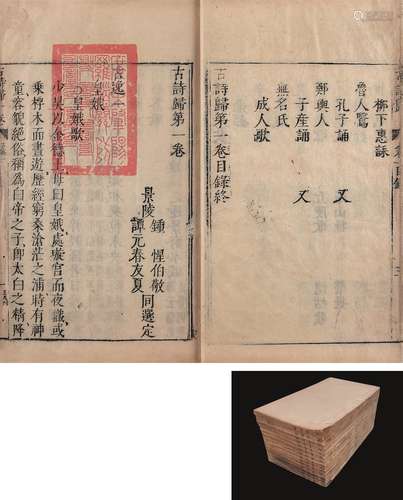 柳下惠誄
魯人
孔子誦 又
鄭輿人
子產誦 又
無名氏
成人歌
古詩歸第一卷目錄終
古詩歸第一卷
景陵 鍾惺伯敬 同選定
譚元春友夏
古逸一
皇娥
皇娥歌
少昊以金德王母曰皇娥處璇宮而夜織或
乘桴木而晝遊歷經窮桑滄茫之浦時有神
童容貌絕俗稱為白帝之子即太白之精降